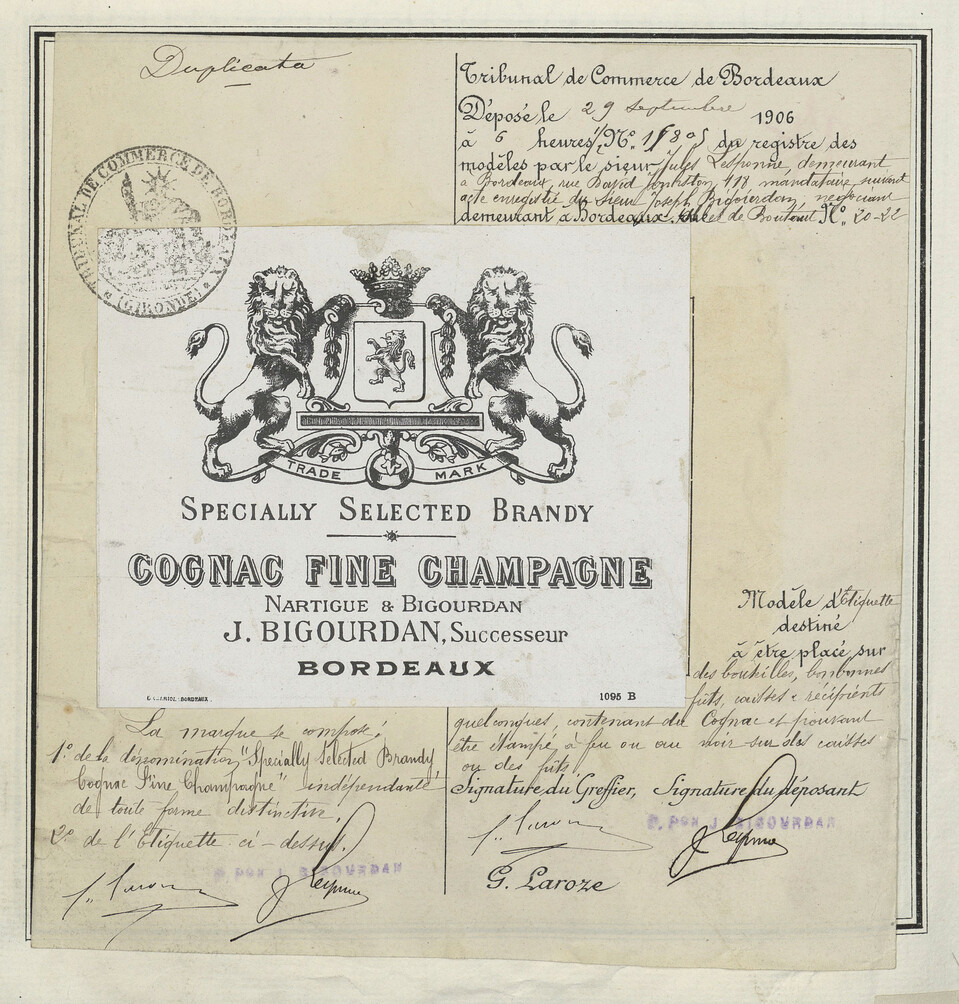 Duplicata
Tribunal de Commerce de Bordeaux
Déposé le 29 septembre 1906
à 6 heures, No. du registre des
modèles par le sieur Jules Lesponne, demeurant
à Bordeaux, rue David Johnston, 118, mandataire, suivant
acte enregistré du sieur Joseph Bigourdan, négociant
demeurant à Bordeaux, No. 20-22
TRIBUNAL DE COMMERCE DE BORDEAUX
(GIRONDE)
TRADE MARK
SPECIALLY SELECTED BRANDY
COGNAC FINE CHAMPAGNE
NARTIGUE & BIGOURDAN
J. BIGOURDAN, Successeur
BORDEAUX
BORDEAUX.
1095 B
Modèle d'Etiquette
destiné
à être placé sur
des bouteilles, bonbonnes
fûts, caisses & récipients
quelconques, contenant du Cognac et pouvant
être étampé, à feu ou au noir sur des caisses
ou des fûts.
Signature du Greffier, Signature du déposant
P. PON J. BIGOURDAN
G. Laroze
La marque se compose:
1o. de la dénomination "Specially Selected Brandy
Cognac Fine Champagne" indépendante
de toute forme distinctive.
2o. de l'Etiquette ci-dessus.
P. PON J. BIGOURDAN